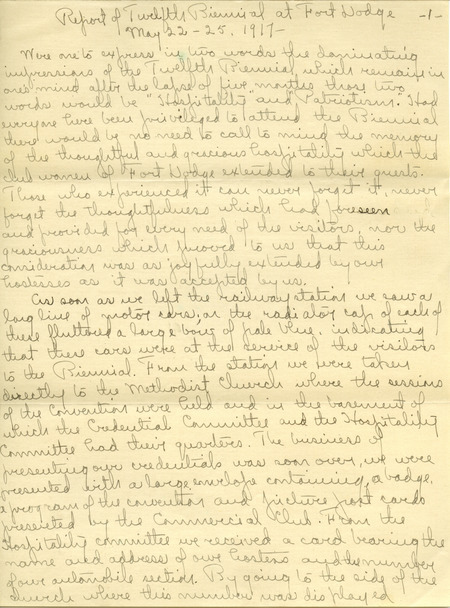 Report of Twelfth Biennial at Fort Dodge -1-
May 22-25, 1917-
Were one to express in two words the dominating
impressions of the Twelfth Biennial, which remains in
ones mind after the lapse of five months those two
words would be "Hospitality and Patriotism. Had
everyone here been privileged to attend the Biennial
there would be no need to call to mind the memory
of the thoughtful and gracious hospitality which the
club women of Fort Dodge extended to their guests.
Those who experienced it can never forget it, never
forget the thoughtfulness which had foreseen
and provided for every need of the visitors, nor the
graciousness which proved to us that this
consideration was as joyfully extended by our
hostesses as it was accepted by us.
As soon as we left the railway station we saw a
long line of motor cars, on the radiator cap of each of
these fluttered a large bow of pale blue, indicating
that these cars were at the service of the visitors
to the Biennial. From the station we were taken
directly to the Methodist Church where the sessions
of the Convention were held and in the basement of
which the Credential Committee and the Hospitality
Committee had their quarters. The business of
presenting our credentials was soon over, we were
presented with a large envelope containing, a badge,
a program of the convention and picture post cards
presented by the Commercial Club. From the
Hospitality committee we received a card bearing the
name and address of our hostess and the number
of our automobile section. By going to the side of the
church where this number was displayed